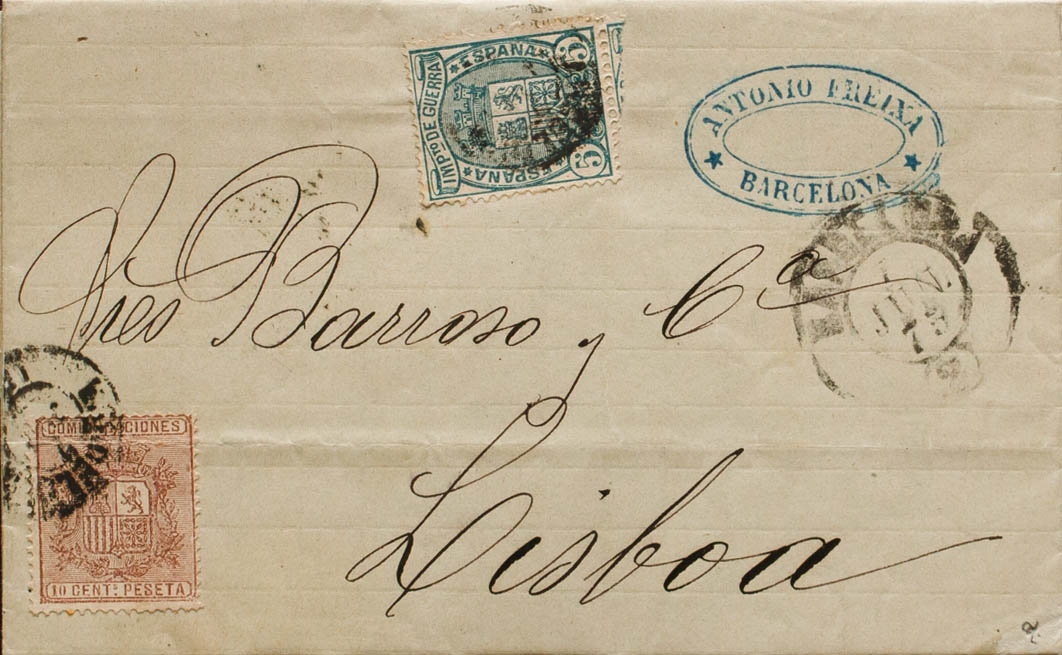 ESPAÑA
5
IMPTO DE GUERRA
5
ESPAÑA
ANTONIO FREIXA
BARCELONA
Sres Barroso y Cª
1
JUN.
75
COMUNICACIONES
10 CENTS PESETA
Lisboa